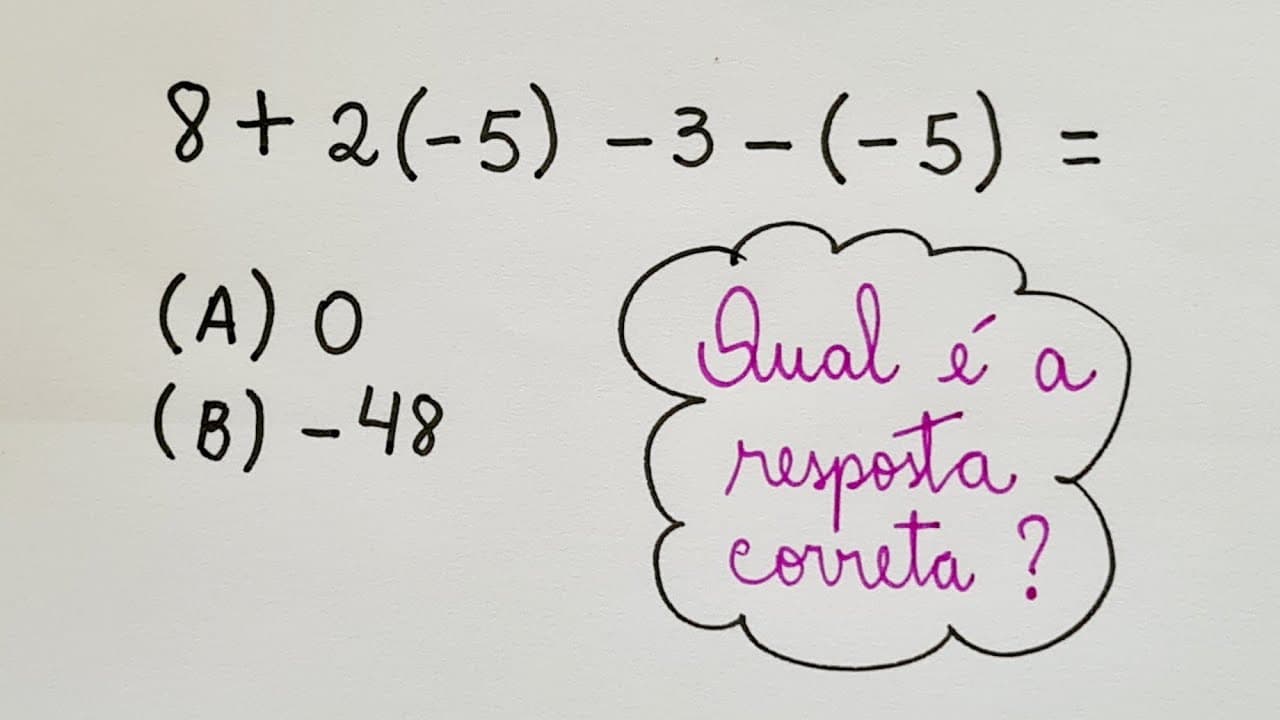 8 + 2(-5) - 3 - (-5) =
(A) 0
(B) - 48
Qual é a
resposta
correta ?